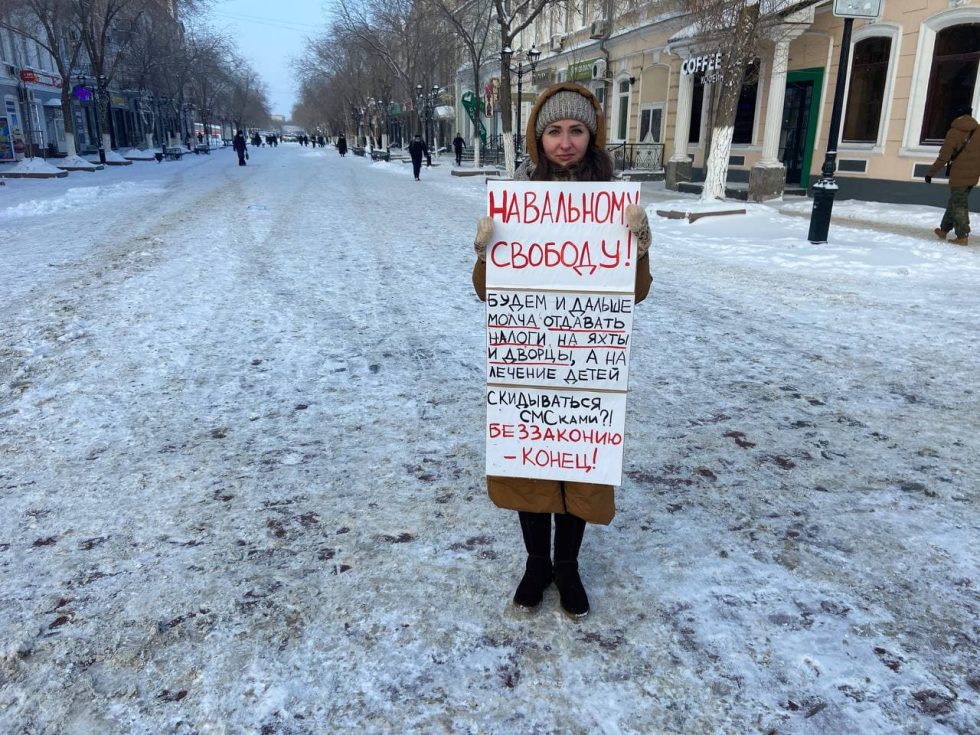 COFFEE
НАВАЛЬНОМУ
СВОБОДУ!
БУДЕМ И ДАЛЬШЕ
МОЛЧА ОТДАВАТЬ
НАЛОГИ НА ЯХТЫ
И ДВОРЦЫ, А НА
ЛЕЧЕНИЕ ДЕТЕЙ
СКИДЫВАТЬСЯ
СМСками?!
БЕЗЗАКОНИЮ
– КОНЕЦ!